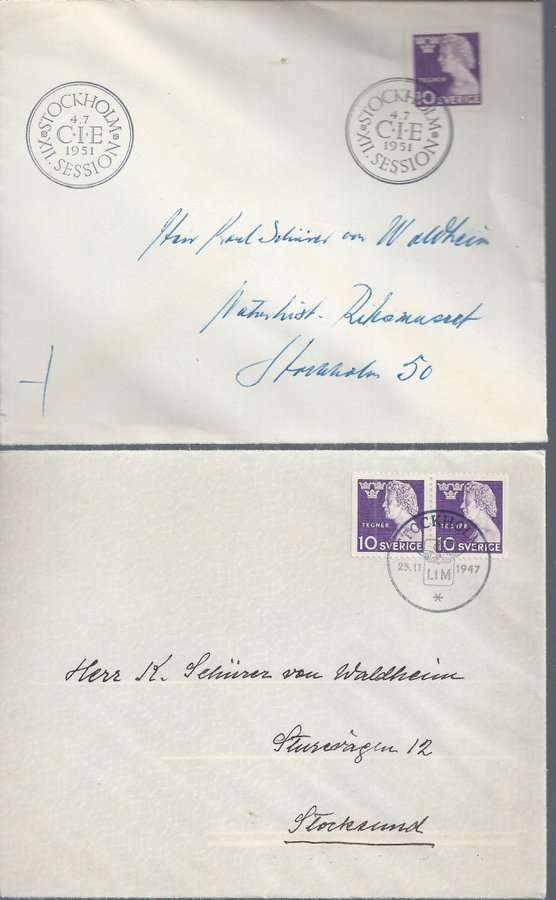 TEGNER
10 SVERIGE
STOCKHOLM
4.7
C·I·E
1951
XII. SESSION
STOCKHOLM
4.7
C·I·E
1951
XII. SESSION
Herr Karl Schürer von Waldheim
Naturhist. Riksmuseet
Stockholm 50
TEGNER
10 SVERIGE
TEGNER
10 SVERIGE
STOCKHOLM
25.11 1947
LIM
Herr K. Schürer von Waldheim
Sturevägen 12
Stocksund